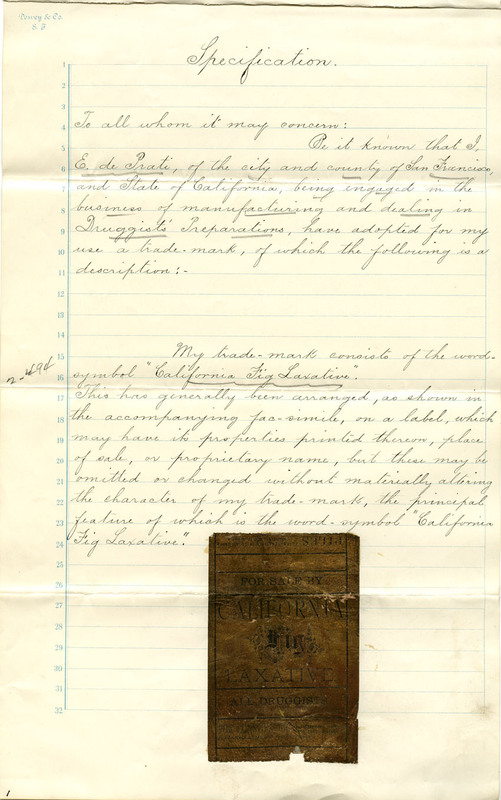 Towne & Co.
S. F.
Specification.
1
2
3
To all whom it may concern:
4
Be it known that I,
5
E. de Prati, of the city and county of San Francisco,
6
and State of California, being engaged in the
7
business of manufacturing and dealing in
8
Druggists' Preparations, have adopted for my
9
use a trade-mark, of which the following is a
10
description:-
11
12
13
14
My trade-mark consists of the word-
15
2-494
symbol "California Fig Laxative".
16
This has generally been arranged, as shown in
17
the accompanying fac-simile, on a label, which
18
may have its properties printed thereon, place
19
of sale, or proprietary name, but these may be
20
omitted or changed without materially altering
21
the character of my trade-mark, the principal
22
feature of which is the word-symbol "California
23
Fig Laxative".
24
25
26
27
28
29
30
31
32
FOR SALE BY
CALIFORNIA
Fig
LAXATIVE
ALL DRUGGISTS
1